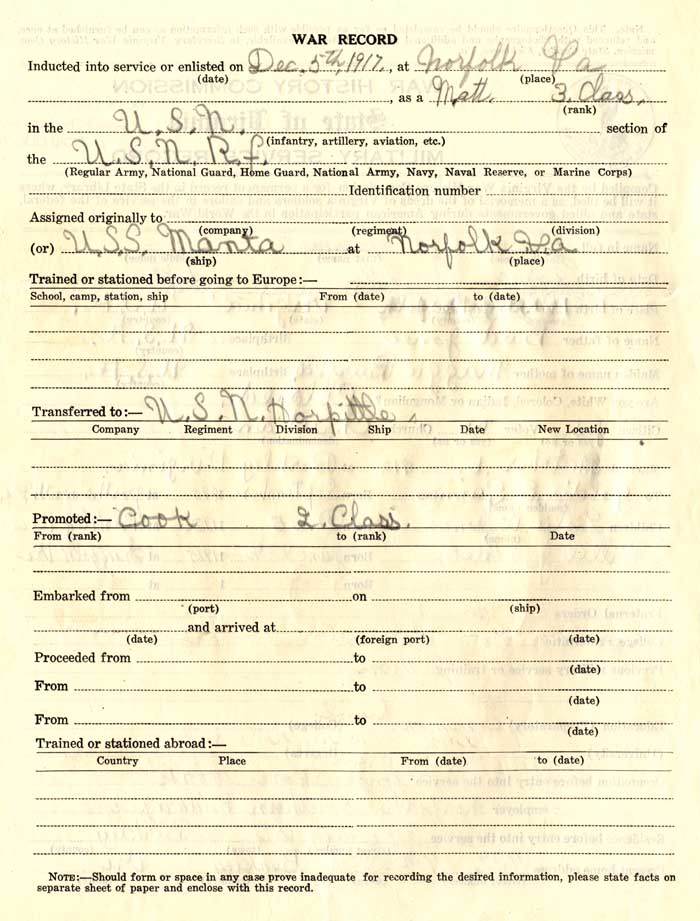 WAR RECORD
Inducted into service or enlisted on Dec. 5th, 1917, at Norfolk Va
(date) (place)
, as a Matt. 3. Class.
(rank)
in the U. S. N. section of
(infantry, artillery, aviation, etc.)
the U. S. N. R. f.
(Regular Army, National Guard, Home Guard, National Army, Navy, Naval Reserve, or Marine Corps)
Identification number
Assigned originally to
(company) (regiment) (division)
(or) U.S.S. Manta at Norfolk Va
(ship) (place)
Trained or stationed before going to Europe:—
School, camp, station, ship From (date) to (date)
Transferred to:— U. S. N. Horpittle.
Company Regiment Division Ship Date New Location
Promoted:— Cook 2. Class.
From (rank) to (rank) Date
Embarked from on
(port) (ship)
and arrived at
(date) (foreign port) (date)
Proceeded from to
(date)
From to
(date)
From to
(date)
Trained or stationed abroad:—
Country Place From (date) to (date)
NOTE:—Should form or space in any case prove inadequate for recording the desired information, please state facts on
separate sheet of paper and enclose with this record.